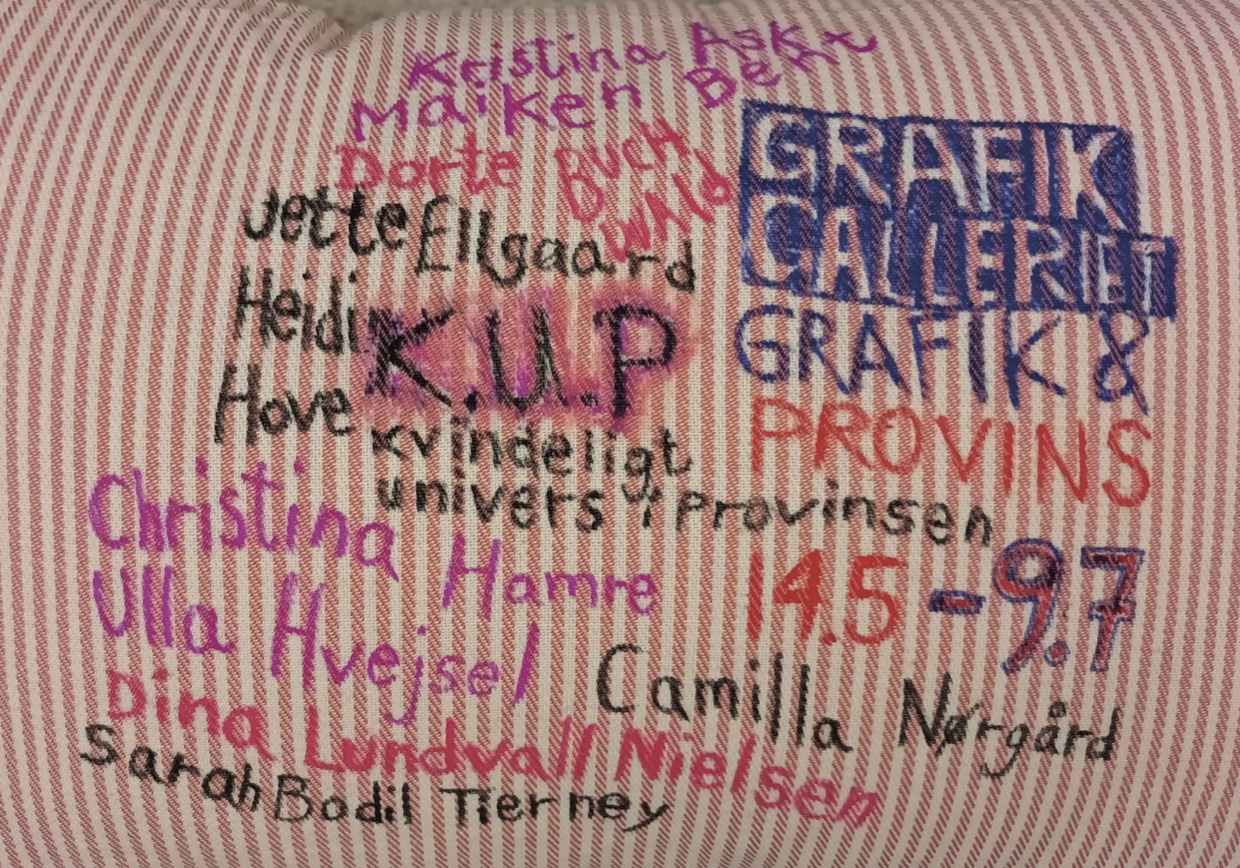 Kristina Ask
Maiken Bent
Dorte BUCH
WALD
Jette Ellgaard
Heidi
Hove
K.U.P
kvindeligt
univers i provinsen
GRAFIK
GALLERIET
GRAFIK &
PROVINS
14.5-9.7
Christina Hamre
Ulla Hvejsel
Camilla Nørgård
Dina Lundvall Nielsen
Sarah Bodil Tierney